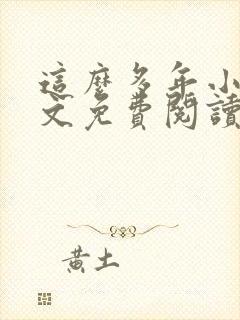 這麼多年小
文免費閱讀
黃土